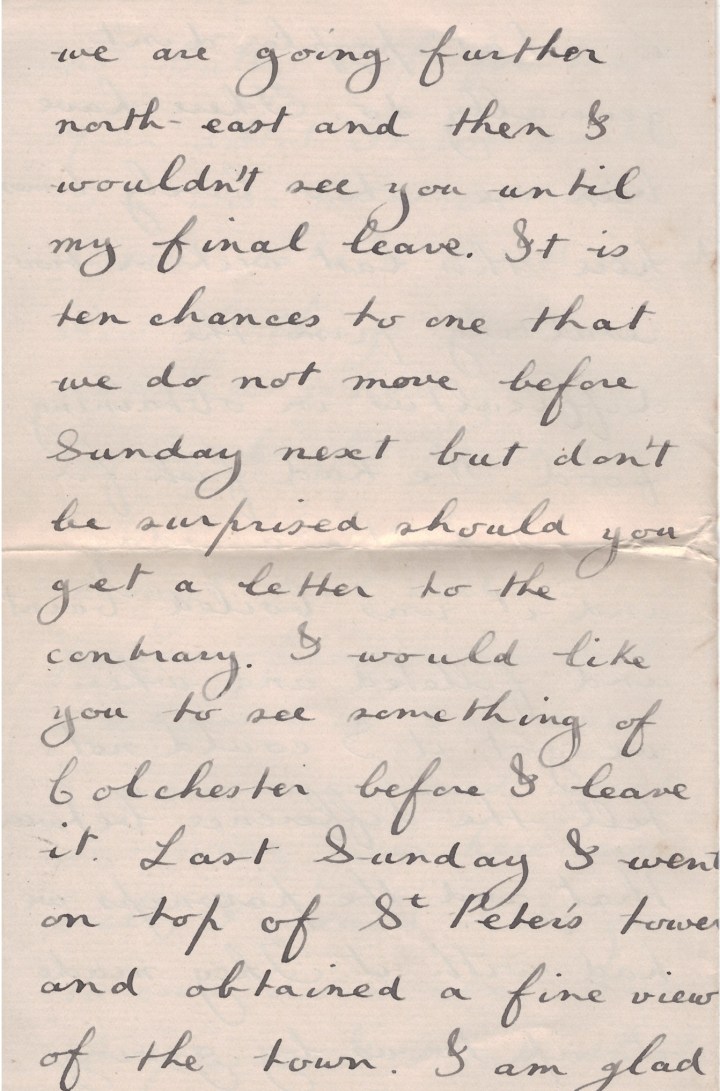 we are going further
north-east and then I
wouldn't see you until
my final leave. It is
ten chances to one that
we do not move before
Sunday next but don't
be surprised should you
get a letter to the
contrary. I would like
you to see something of
Colchester before I leave
it. Last Sunday I went
on top of St Peter's tower
and obtained a fine view
of the town. I am glad